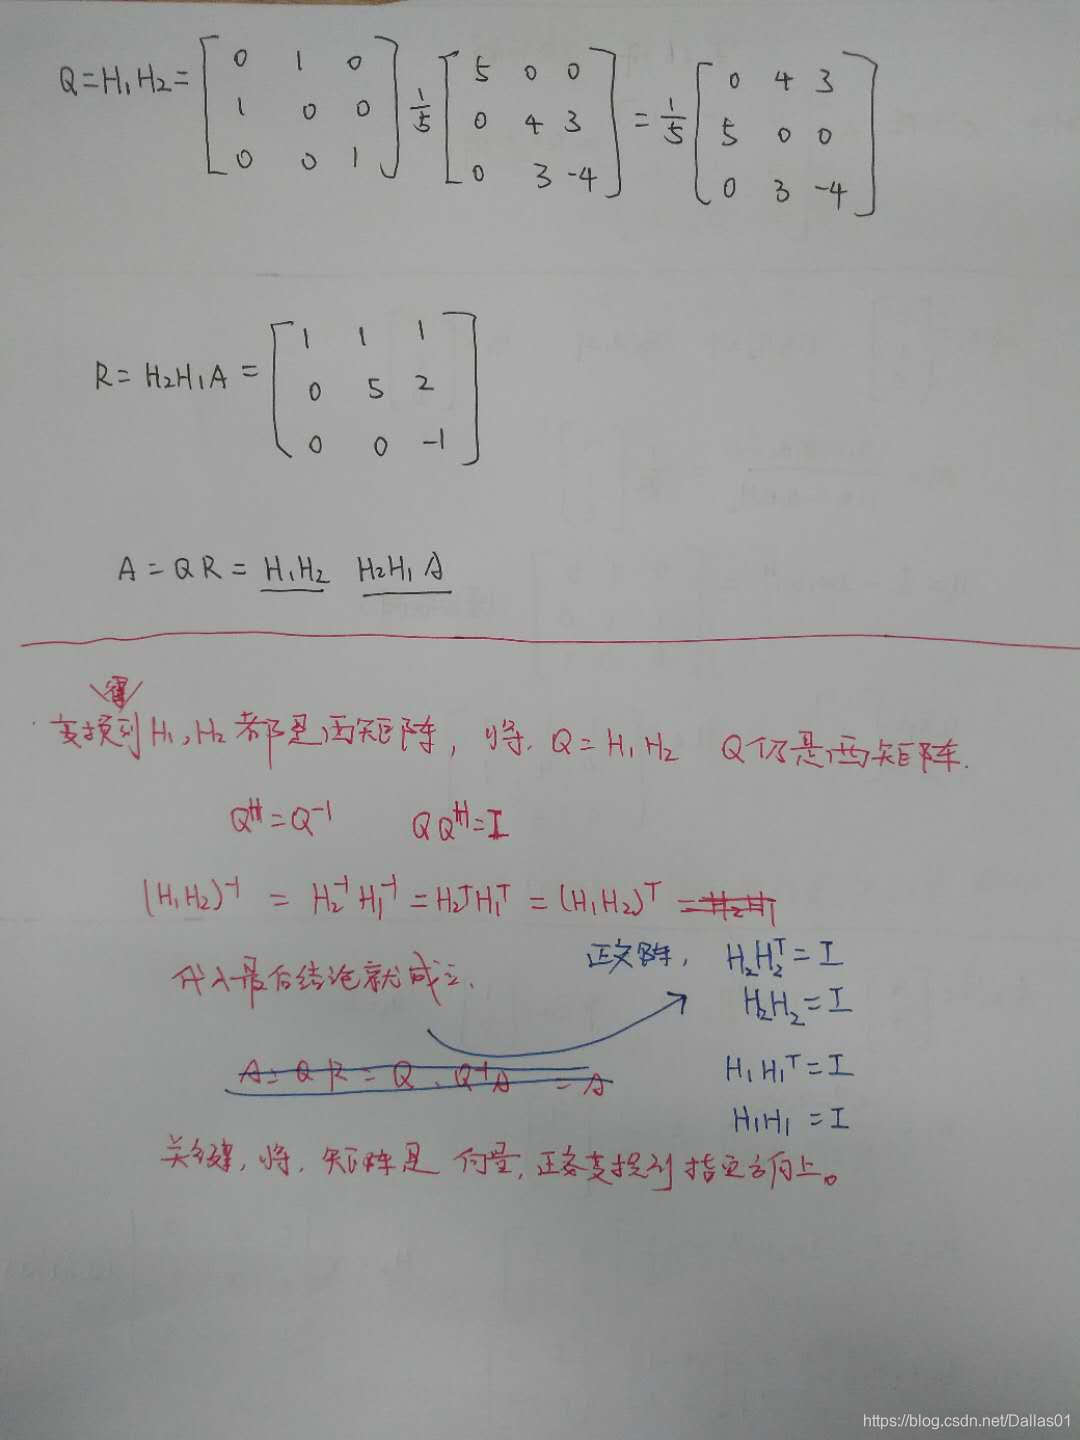 Q=H₁H₂= [0 1 0; 1 0 0; 0 0 1] 1/5 [5 0 0; 0 4 3; 0 3 -4] = 1/5 [0 4 3; 5 0 0; 0 3 -4]
R=H₂H₁A= [1 1 1; 0 5 2; 0 0 -1]
A=QR=H₁H₂ H₂H₁A
得
变换到H₁,H₂都是酉矩阵,将.Q=H₁H₂ Q仍是酉矩阵.
Qᴴ=Q⁻¹ QQᴴ=I
(H₁H₂)⁻¹ = H₂⁻¹H₁⁻¹=H₂ᵀH₁ᵀ=(H₁H₂)ᵀ =H₂H₁
代入最后结论就成立.
正交阵, H₂H₂ᵀ=I
H₂H₂=I
A=QR=Q·Q⁻¹A =A
H₁H₁ᵀ=I
H₁H₁=I
关键,将,矩阵是 向量,正交变换到指定方向上。
https://blog.csdn.net/Dallas01